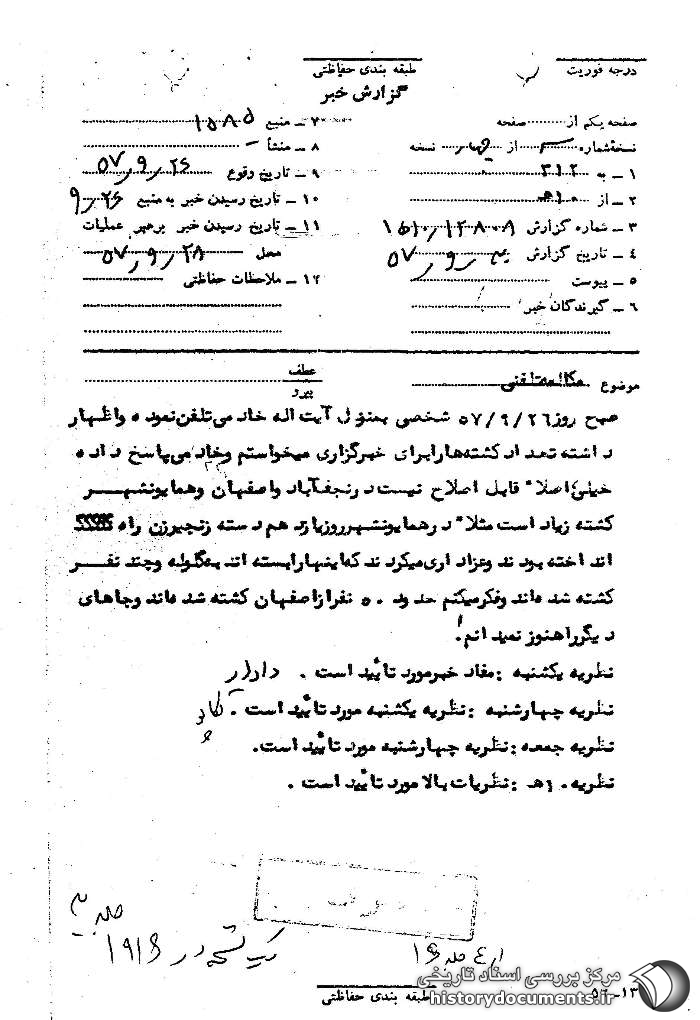 درجه فوریت
طبقه بندی حفاظتی
گزارش خبر
صفحه یکم از صفحه
نسخه شماره از چهار نسخه
۱ ـ به ۳۱۲
۲ ـ از ۱۰ه‍
۳ ـ شماره گزارش
۴ ـ تاریخ گزارش
۵ ـ پیوست
۶ ـ گیرندگان خبر
۷ ـ منبع
۸ ـ منشأ ـ
۹ ـ تاریخ وقوع ۵۷٫۹٫۲۶
۱۰ ـ تاریخ رسیدن خبر به منبع ۹٫۲۶
۱۱ ـ تاریخ رسیدن خبر برهبر عملیات
محل ۵۷٫۹٫۲۸
۱۲ ـ ملاحظات حفاظتی
موضوع مکالمه تلفنی
عطف
پیرو
صبح روز ۵۷/۹/۲۶ شخصی بمنزل آیت اله خادمی تلفن نموده و اظهار
داشته تعداد کشته‌ها را برای خبرگزاری میخواستم وخادمی پاسخ داده
خیلی اصلا" قابل اصلاح نیست در نجف‌آباد واصفهان وهمایونشهر
کشته زیاد است مثلا" در همایونشهر روز یازدهم دسته زنجیرزن راه
انداخته بودند وعزاداری میکردند که اینها را بسته اند به گلوله وچند نفر
کشته شده‌اند وفکر میکنم حدود ۵۰ نفر از اصفهان کشته شده‌اند وجاهای
دیگر را هنوز نمیدانم!
نظریه یکشنبه : مفاد خبر مورد تأیید است . دادار
نظریه چهارشنبه : نظریه یکشنبه مورد تأیید است .
نظریه جمعه : نظریه چهارشنبه مورد تأیید است.
نظریه ۱۰ه‍ : نظریات بالا مورد تأیید است .
یک نسخه در
طبقه بندی حفاظتی
۵۶ـ۱۳
مرکز بررسی اسناد تاریخی
historydocuments.ir